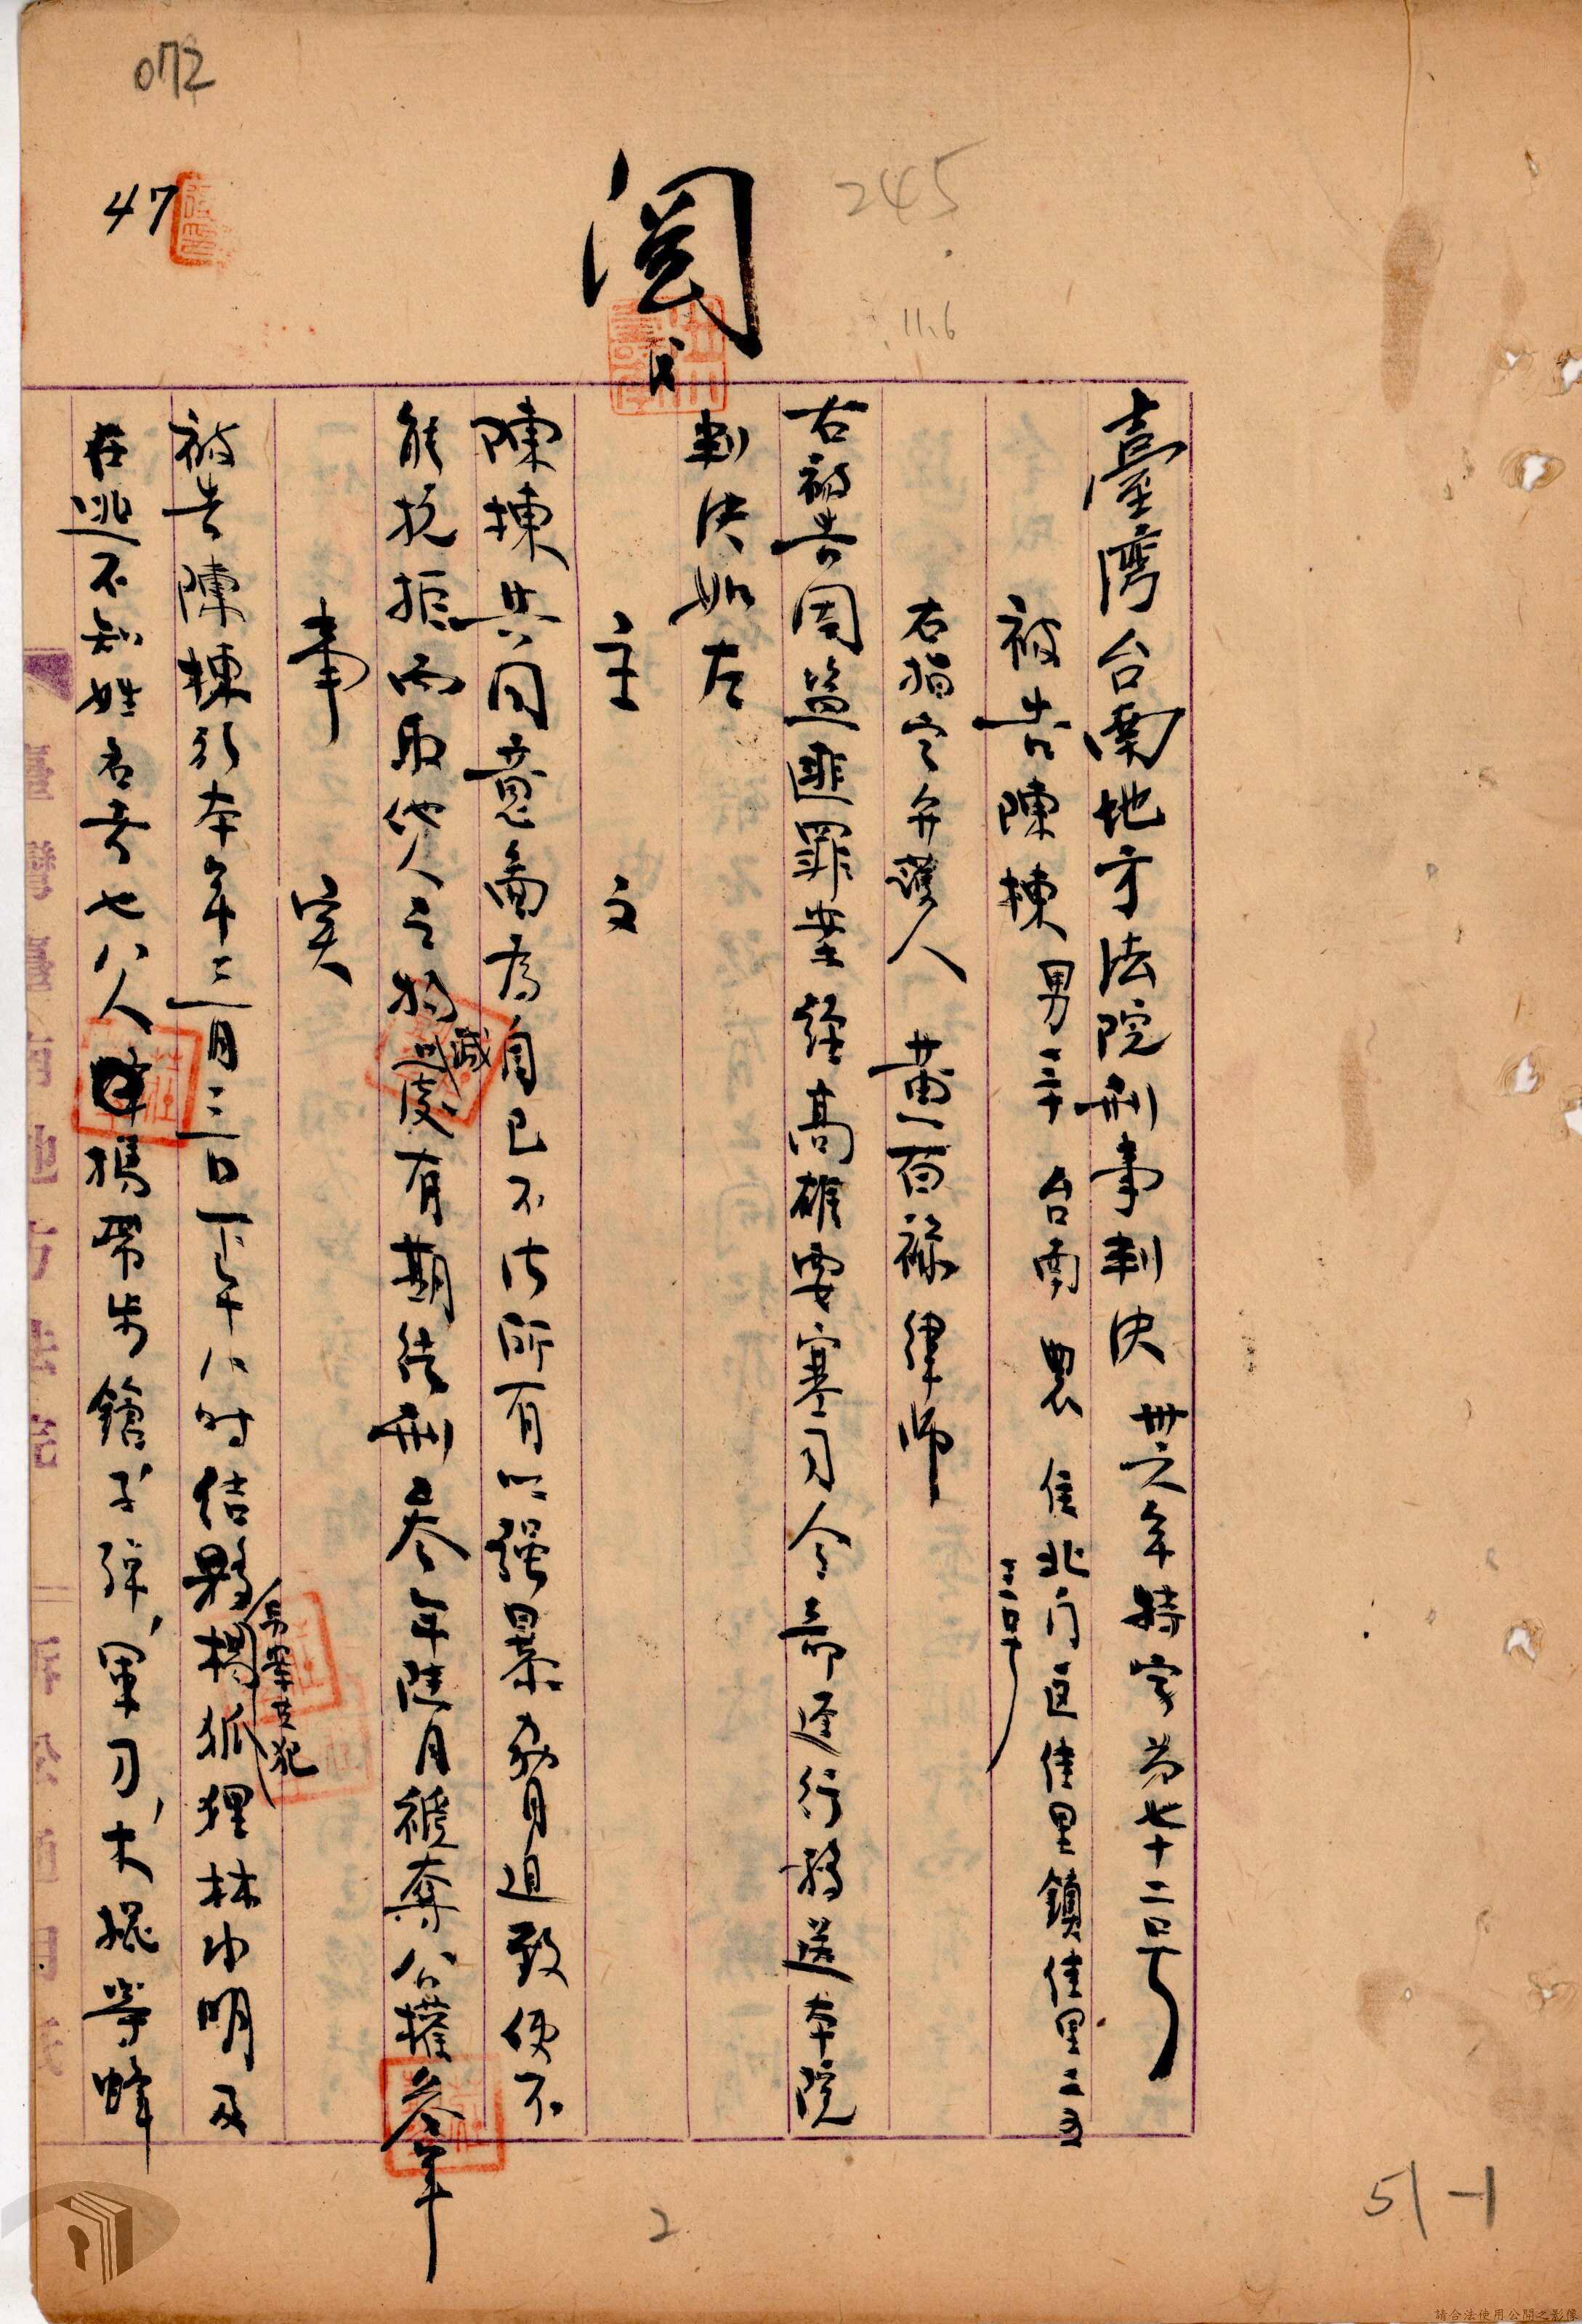 072
47
245
11.6
閱
臺灣台南地方法院刑事判決 卅六年特字第七十二號
被告陳棟 男 三十 台南 農 住北门区佳里鎮佳里二五
三号
右指定弁護人 黃百祿律師
右被告因盜匪罪案経高雄要塞司令部逕行移送本院
判決如左
主 文
陳棟共同意圖為自己不法所有以强暴脅迫致使不
能抗拒而取他人之物減處有期徒刑叁年陸月褫奪公權叁年
事 实
被告陳棟於本年三月三日下午八时佶夥
另案共犯
楊狐狸林水明及
在逃不知姓名者七八人
携帶步鎗、子弹、軍刀、木棍等蜂
2
51-1
請合法使用公開之影像